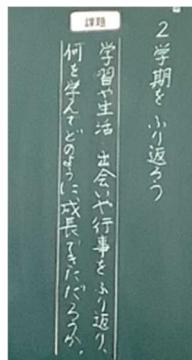 2学期をふり返ろう
課題
学習や生活、出会いや行事をふり返り、
何を学んでどのように成長できただろうか。